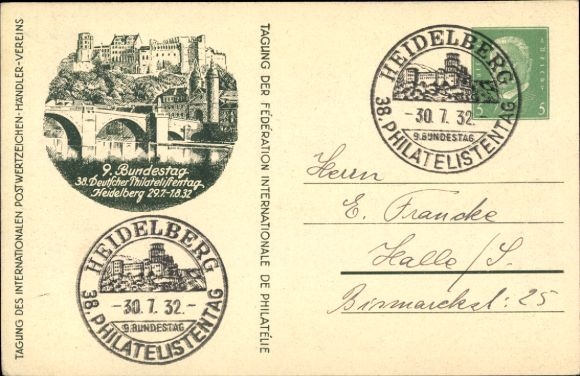 TAGUNG DES INTERNATIONALEN POSTWERTZEICHEN-HÄNDLER-VEREINS
9. Bundestag
38. Deutscher Philatelistentag
Heidelberg 29.7.-1.8.32
TAGUNG DER FÉDÉRATION INTERNATIONALE DE PHILATÉLIE
HEIDELBERG
-30.7.32.-
9.BUNDESTAG
38.PHILATELISTENTAG
HEIDELBERG
-30.7.32.-
9.BUNDESTAG
38.PHILATELISTENTAG
5
5
Herrn
E. Francke
Halle/S.
Bismarckst: 25